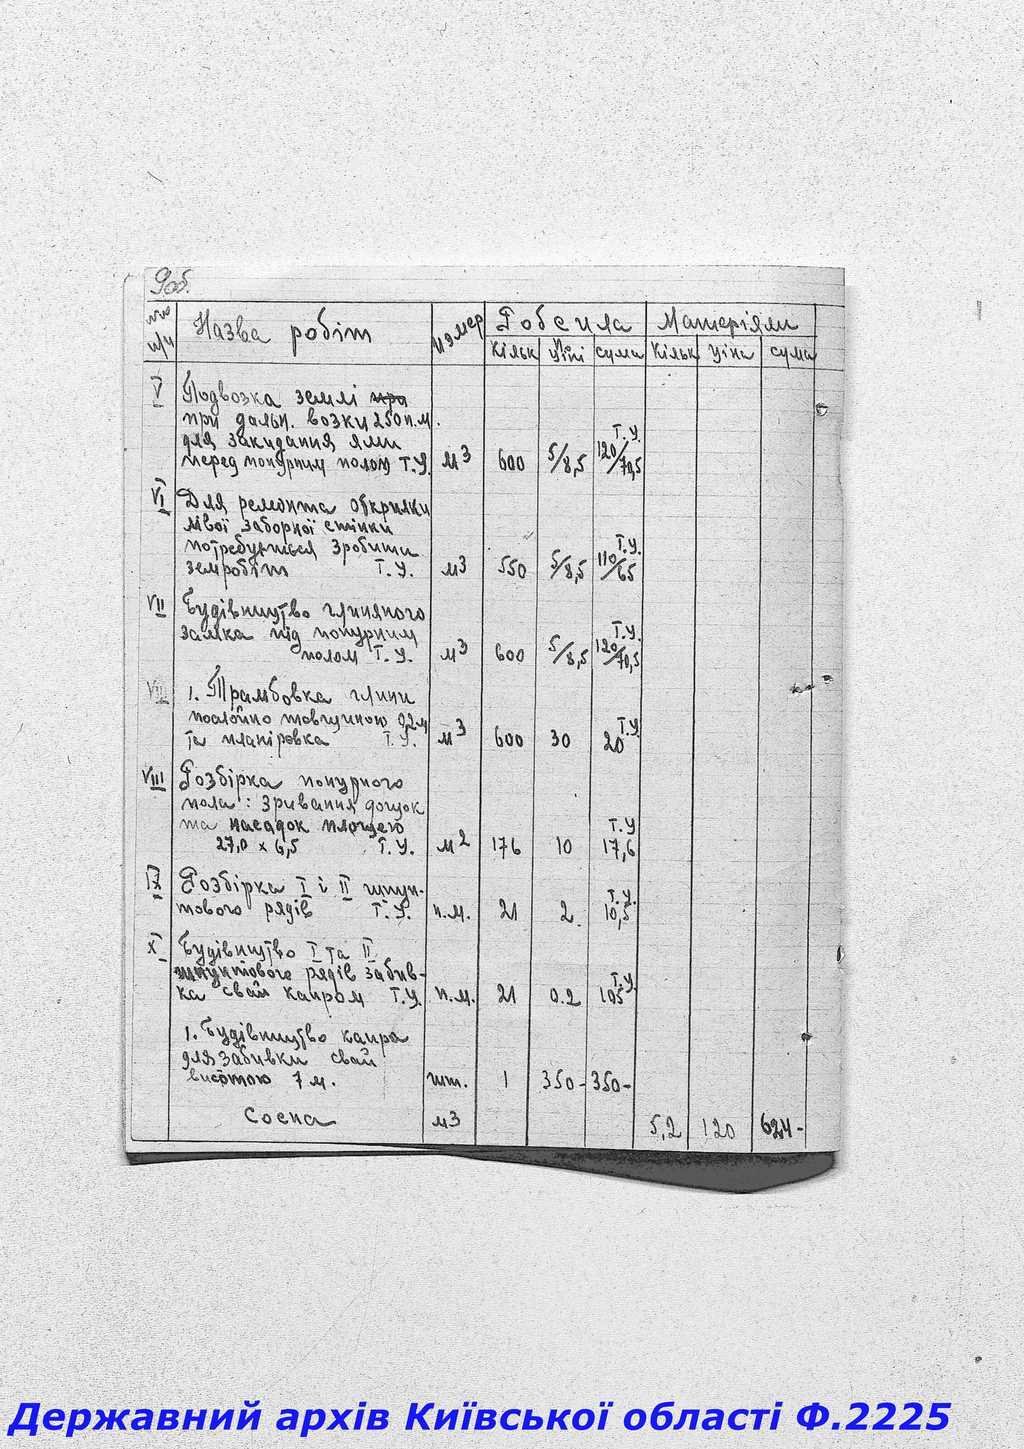 9об.
№№ п/ч Назва робіт измер Робсила Матеріяли
Кільк Ціни сума Кільк Ціна сума
V Подвозка землі при
при дальн. возки 250 п.м.
для закидання ями Т.У.
перед понурним полом Т.У. м3 600 5/8,5 120/70,5
VI Для ремонта обкрилки
лівої заборної стінки
потребується зробити Т.У.
земробіт Т.У. м3 550 5/8,5 110/65
VII Будівництво глиняного
замка під понурним Т.У.
полом Т.У. м3 600 5/8,5 120/70,5
VIII 1. Трамбовка глини
послойно товщиною 0,2м Т.У.
та планіровка Т.У. м3 600 30 20
VIII Розбірка понурного
пола: зривання дощок
та насадок площею Т.У
27,0 x 6,5 Т.У. м2 176 10 17,6
IX Розбірка I і II шпун- Т.У.
тового рядів Т.У. п.м. 21 2. 10,5
X Будівництво I та II
шпунтового рядів забив- Т.У.
ка свай капром Т.У. п.м. 21 0.2 105
1. Будівництво капра
для забивки свай
висотою 7 м. шт. 1 350- 350-
Сосна м3 5,2 120 624-
Державний архів Київської області Ф.2225